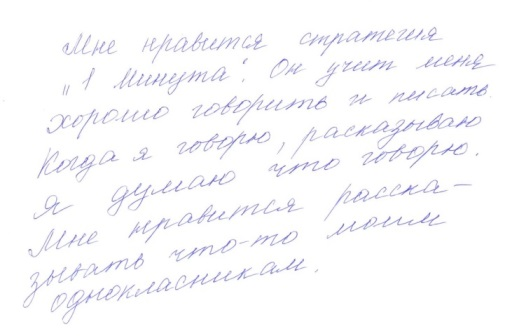 Мне нравится стратегия
„1 минута". Он учит меня
хорошо говорить и писать.
Когда я говорю, рассказываю
я думаю что говорю.
Мне нравится расска-
зывать что-то моим
однокласникам.